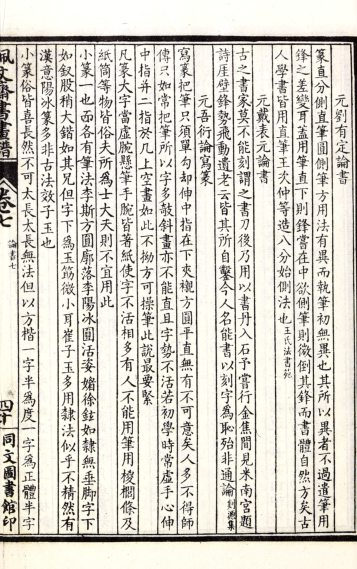 元劉有定論書
篆直分側直筆圓側筆方用法有異而執筆初無異也其所以異者不過遣筆用
鋒之差變耳蓋用筆直下則鋒常在中欲側筆則微倒其鋒而書體自然方矣古
人學書皆用直筆王次仲等造八分始側法也王氏法書苑
元戴表元論書
古之書家莫不能刻謂之書刀後乃用以書丹入石予嘗行金焦間見米南宮題
詩厓壁鋒勢飛動遺老云皆其所自鑿今人名能書以刻字為恥殆非通論剡源集
元吾衍論寫篆
寫篆把筆只須單勾却伸中指在下夾襯方圓平直無有不可意矣人多不得師
傳只如常把筆所以字多欹斜畫亦不能直且字勢不活若初學時常虛手心伸
中指并二指於几上空畫如此不拗方可操筆此說最要緊
凡篆大字當虛腕懸筆手腕皆著紙使字不活相多有人不能用筆用椶櫚條及
紙筒等物皆俗夫所為士大夫則不宜用此
小篆一也面各有筆法李斯方圓廓落李陽冰圓活姿媚徐鉉如隸無垂脚字下
如釵股稍大鍇如其兄但字下為玉筯微小耳崔子玉多用隸法似乎不精然有
漢意陽冰篆多非古法效子玉也
小篆俗皆喜長然不可太長太長無法但以方楷一字半為度一字為正體半字
佩文齋書畫譜
卷七
論書七
四十
同文圖書館印